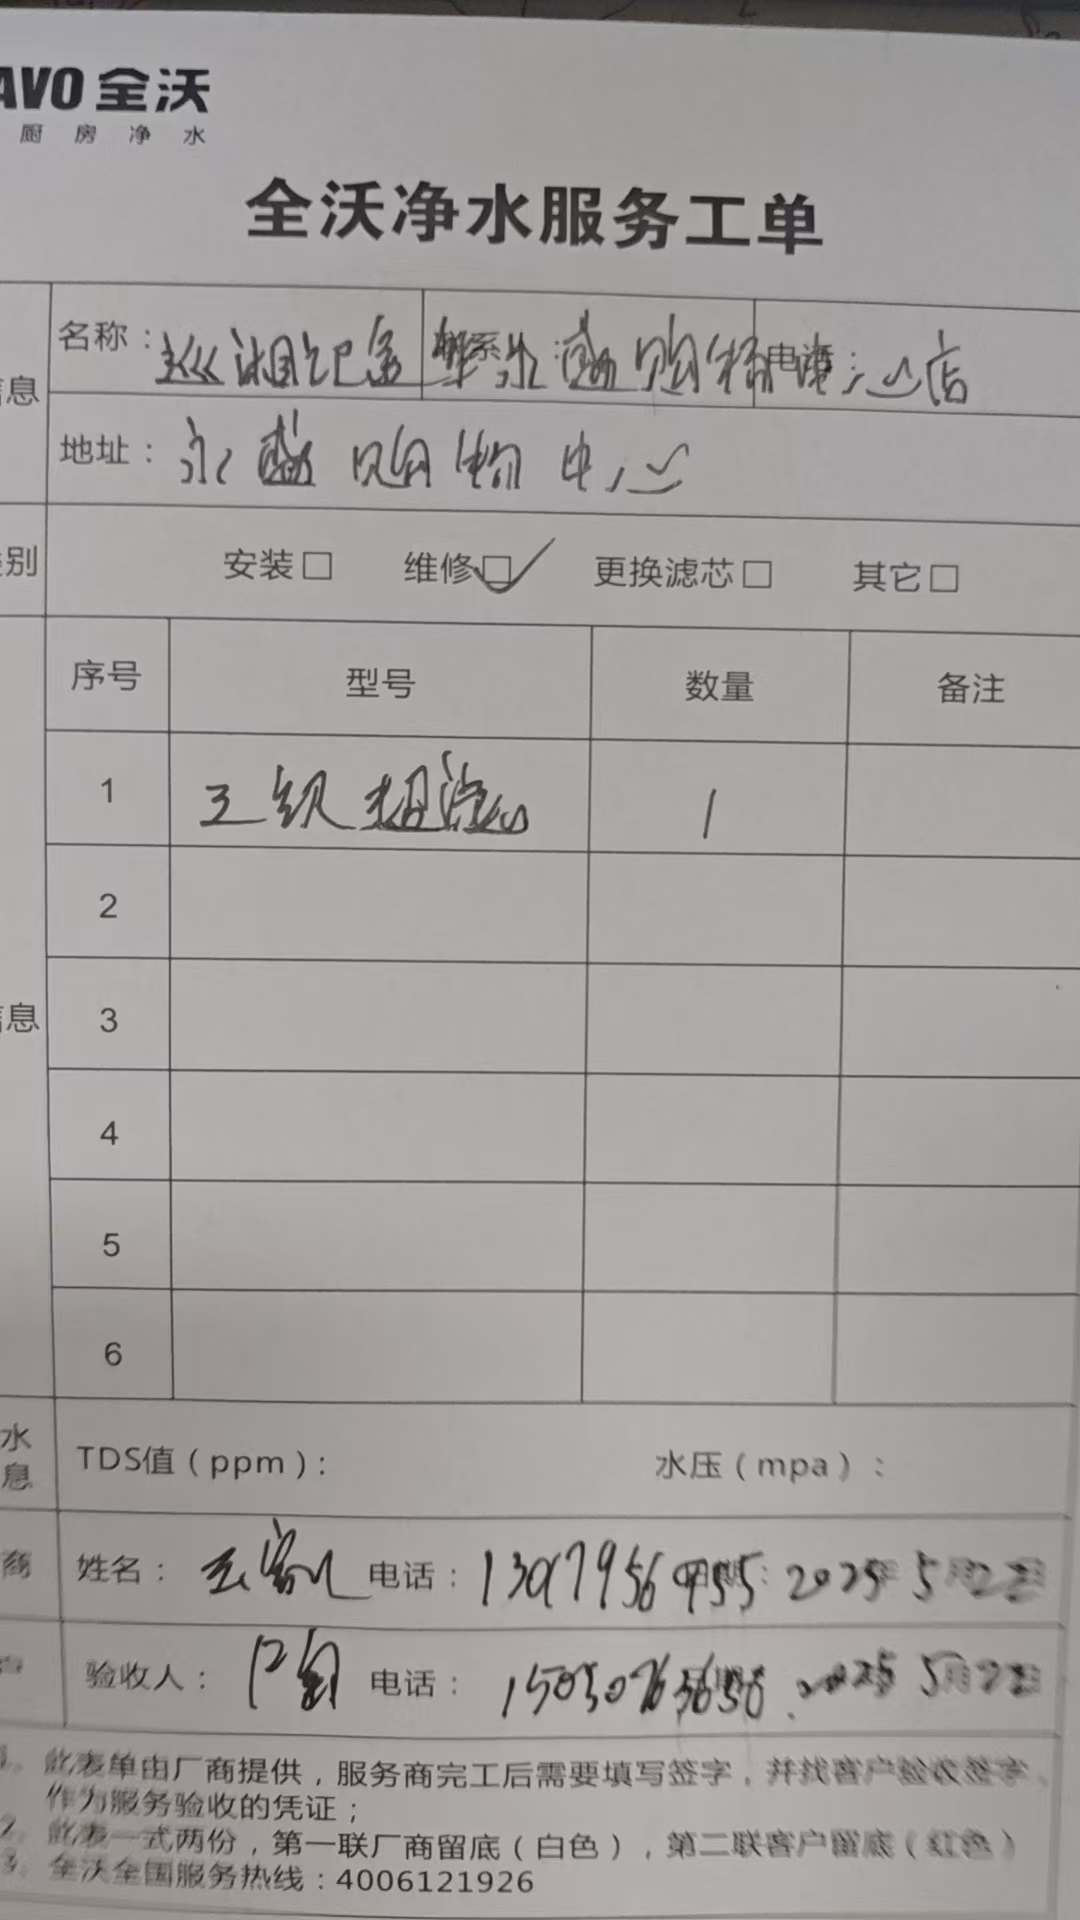 AVO 全沃
厨房净水
全沃净水服务工单
息
名称： 联系 永盛购物 电话： 心店
地址：永盛购物中心
别
安装□ 维修□✓ 更换滤芯□ 其它□
序号 型号 数量 备注
1 三级超滤 1
2
息
3
4
5
6
水
息
TDS值（ppm）： 水压（mpa）：
商
姓名： 电话： 2025 5月22日
验收人： 电话： 2025 5月22日
1、此表单由厂商提供，服务商完工后需要填写签字，并找客户验收签字，
作为服务验收的凭证；
2、此表一式两份，第一联厂商留底（白色），第二联客户留底（红色）
3、全沃全国服务热线：4006121926